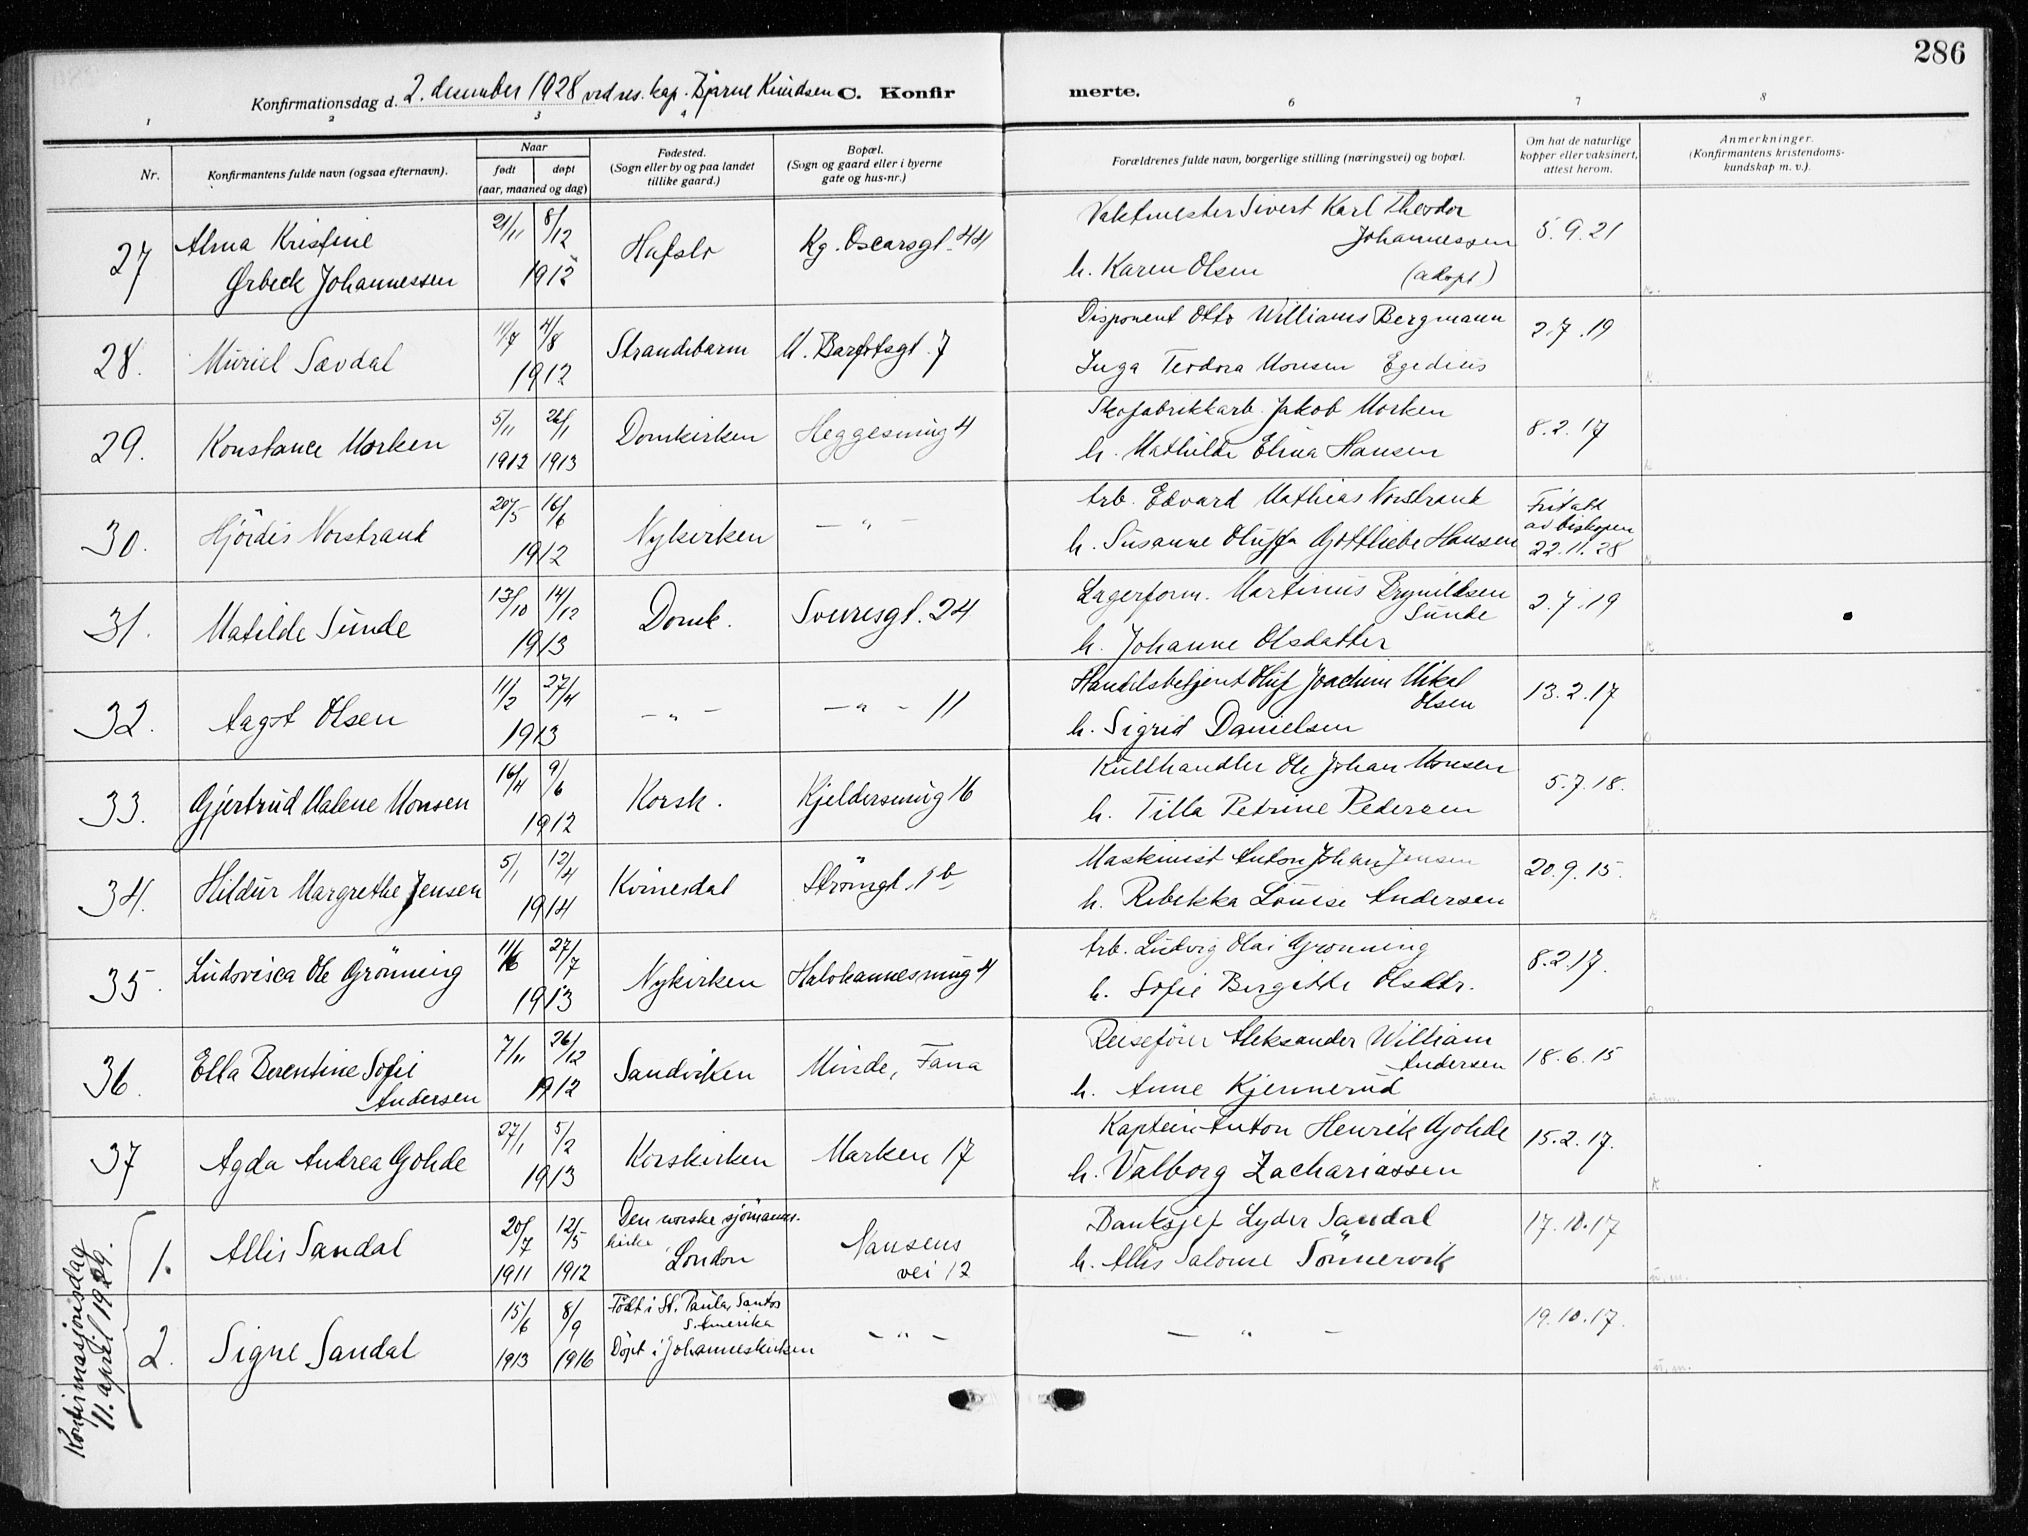 286
Konfirmationsdag d. 2. desember 1928 ved res. kap. Bjarne Knudsen C. Konfir merte.
1 2 3 4 6 7 8
Nr.
Konfirmantens fulde navn (ogsaa efternavn).
Naar
født døpt
(aar, maaned og dag)
Fødested.
(Sogn eller by og paa landet
tillike gaard.)
Bopæl.
(Sogn og gaard eller i byerne
gate og hus-nr.)
Forældrenes fulde navn, borgerlige stilling (næringsvei) og bopæl.
Om hat de naturlige
kopper eller vaksinert,
attest herom.
Anmerkninger.
(Konfirmantens kristendoms-
kundskap m. v.).
27 Alma Kristine
Ørbeck Johannessen
21/11 8/12
1912
Hafslo
Kg. Oscarsgt. 44
Vaktmester Sivert Karl Theodor
Johannessen
h. Karen Olsen (adopt)
5.9.21
28. Muriel Sævdal
11/7 4/8
1912
Strandebarm
M. Barfotsgt. 7
Disponent Otto Williams Bergmann
Inga Teodora Monsen Egedius
2.7.19
29. Konstance Morken
5/11 26/1
1912 1913
Domkirken
Heggesmug 4
Skofabrikkarb. Jakob Morken
h. Mathilde Elina Hansen
8.2.17
30. Hjördis Norstrand
20/5 16/6
1912
Nykirken
— " —
Arb. Edvard Mathias Norstrand
h. Susanne Oluffa Gottliebe Hansen
Fritatt
av biskopen
22.11.28
31. Matilde Sunde
13/10 14/12
1913
Domk.
Sverresgt. 24
Lagerform. Martinus Brynildsen
Sunde
h. Johanne Olsdatter
2.7.19
32. Aagot Olsen
11/2 27/4
1913
— " —
— " — 11
Handelsbetjent Oluf Joachim Mikal
Olsen
h. Sigrid Danielsen
13.2.17
33. Gjertrud Malene Monsen
16/4 9/6
1912
Korsk.
Kjeldersmug 16
Kullhandler Ole Johan Monsen
h. Tilla Petrine Pedersen
5.7.18.
34. Hildur Margrethe Jensen
5/1 12/4
1914
Kvinesdal
Strömgt. 1 b
Maskinist Anton Johan Jensen
h. Rebekka Louise Andersen
20.9.15.
35. Ludovisca Ole Grönning
11/6 27/7
1913
Nykirken
Arb. Ludvig Olai Grønning
h. Sofie Bergitte Olsdtr.
8.2.17.
36. Ella Berentine Sofie
Andersen
7/11 26/12
1912
Sandviken
Minde, Fana
Reisefører Aleksander William
Andersen
h. Anne Kjennerud
18.6.15
37 Agda Andrea Gohde
27/1 5/2
1913
Korskirken
Marken 17
Kaptein Anton Henrik Gohde
h. Valborg Zachariassen
15.2.17.
Konfirmasjonsdag
11. april 1929.
1. Allis Sandal
20/7 12/5
1911 1912
Den norske sjömanns-
kirke, London
Nansens
vei 12
Banksjef Lyder Sandal
h. Allis Salome Tönnervik
17.10.17
2. Signe Sandal
15/6 8/9
1913 1916
Födt i St. Paulo, Santos
S. Amerika
Döpt i Johanneskirken
— " —
— " —
19.10.17.